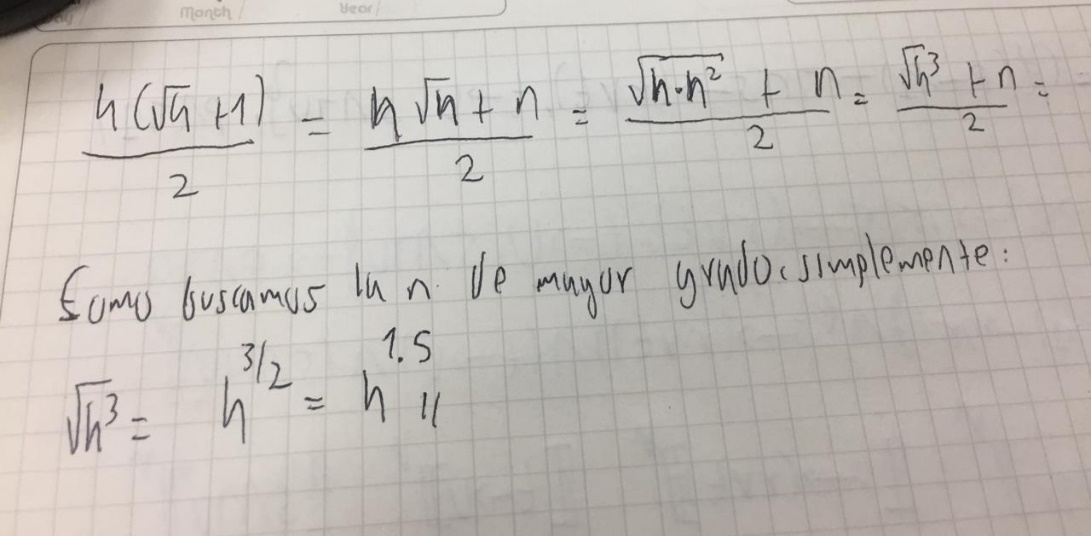 Month / Year /
n(√n+1)/2 = n√n+n/2 = √n·n²+n/2 = √n³+n/2 =
Como buscamos la n de mayor grado. simplemente:
√n³ = n^3/2 = n^1.5 //